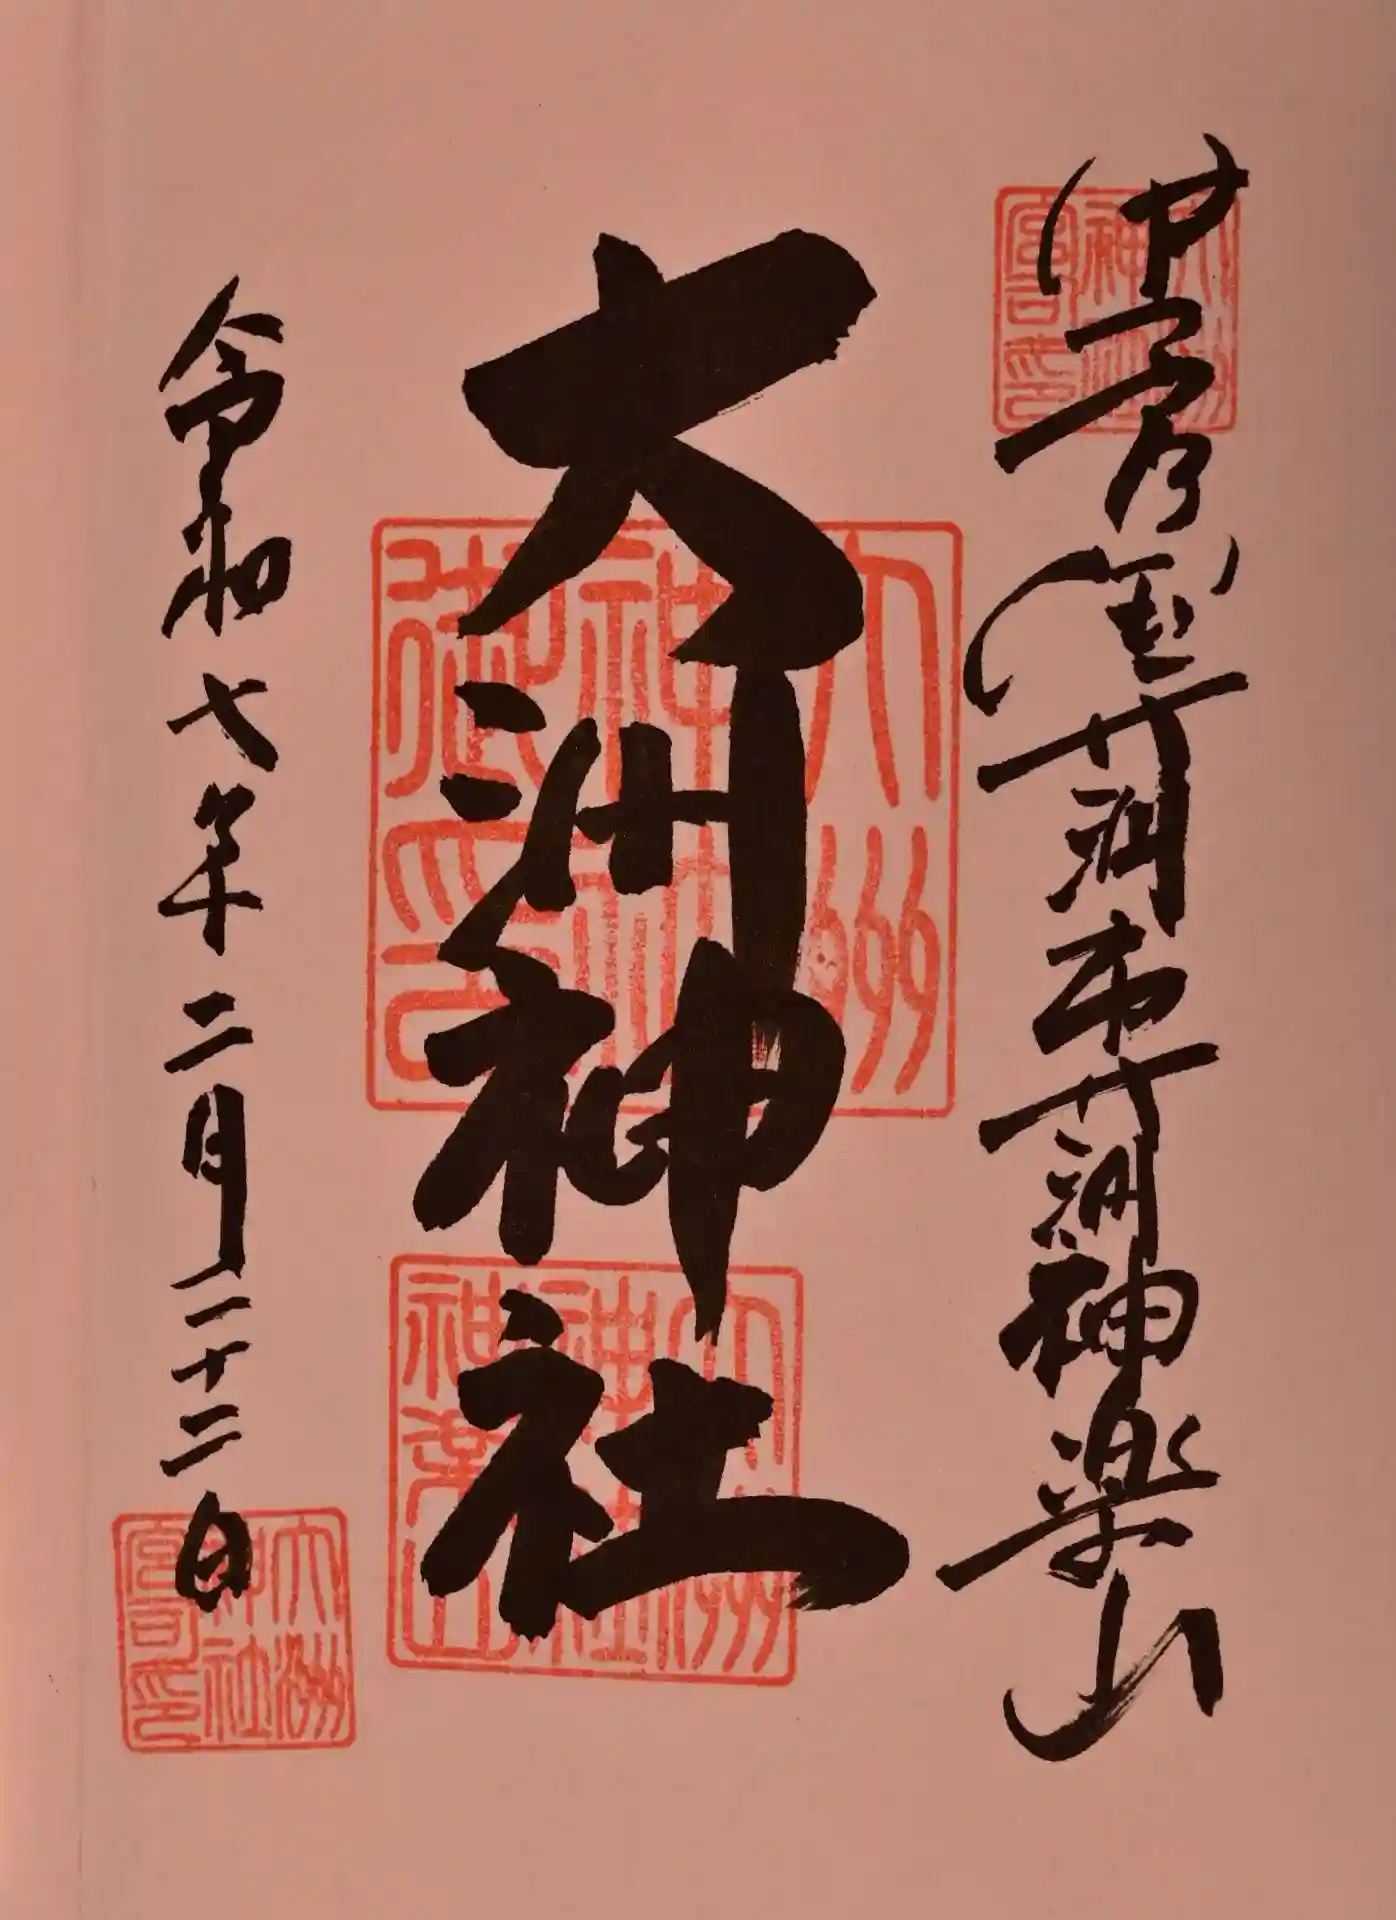 伊豫國大洲市大洲神楽山
大洲神社
令和七年二月二十二日
大洲神社宮司印
大洲神社御印
大洲神社神楽山
大洲神社宮司印